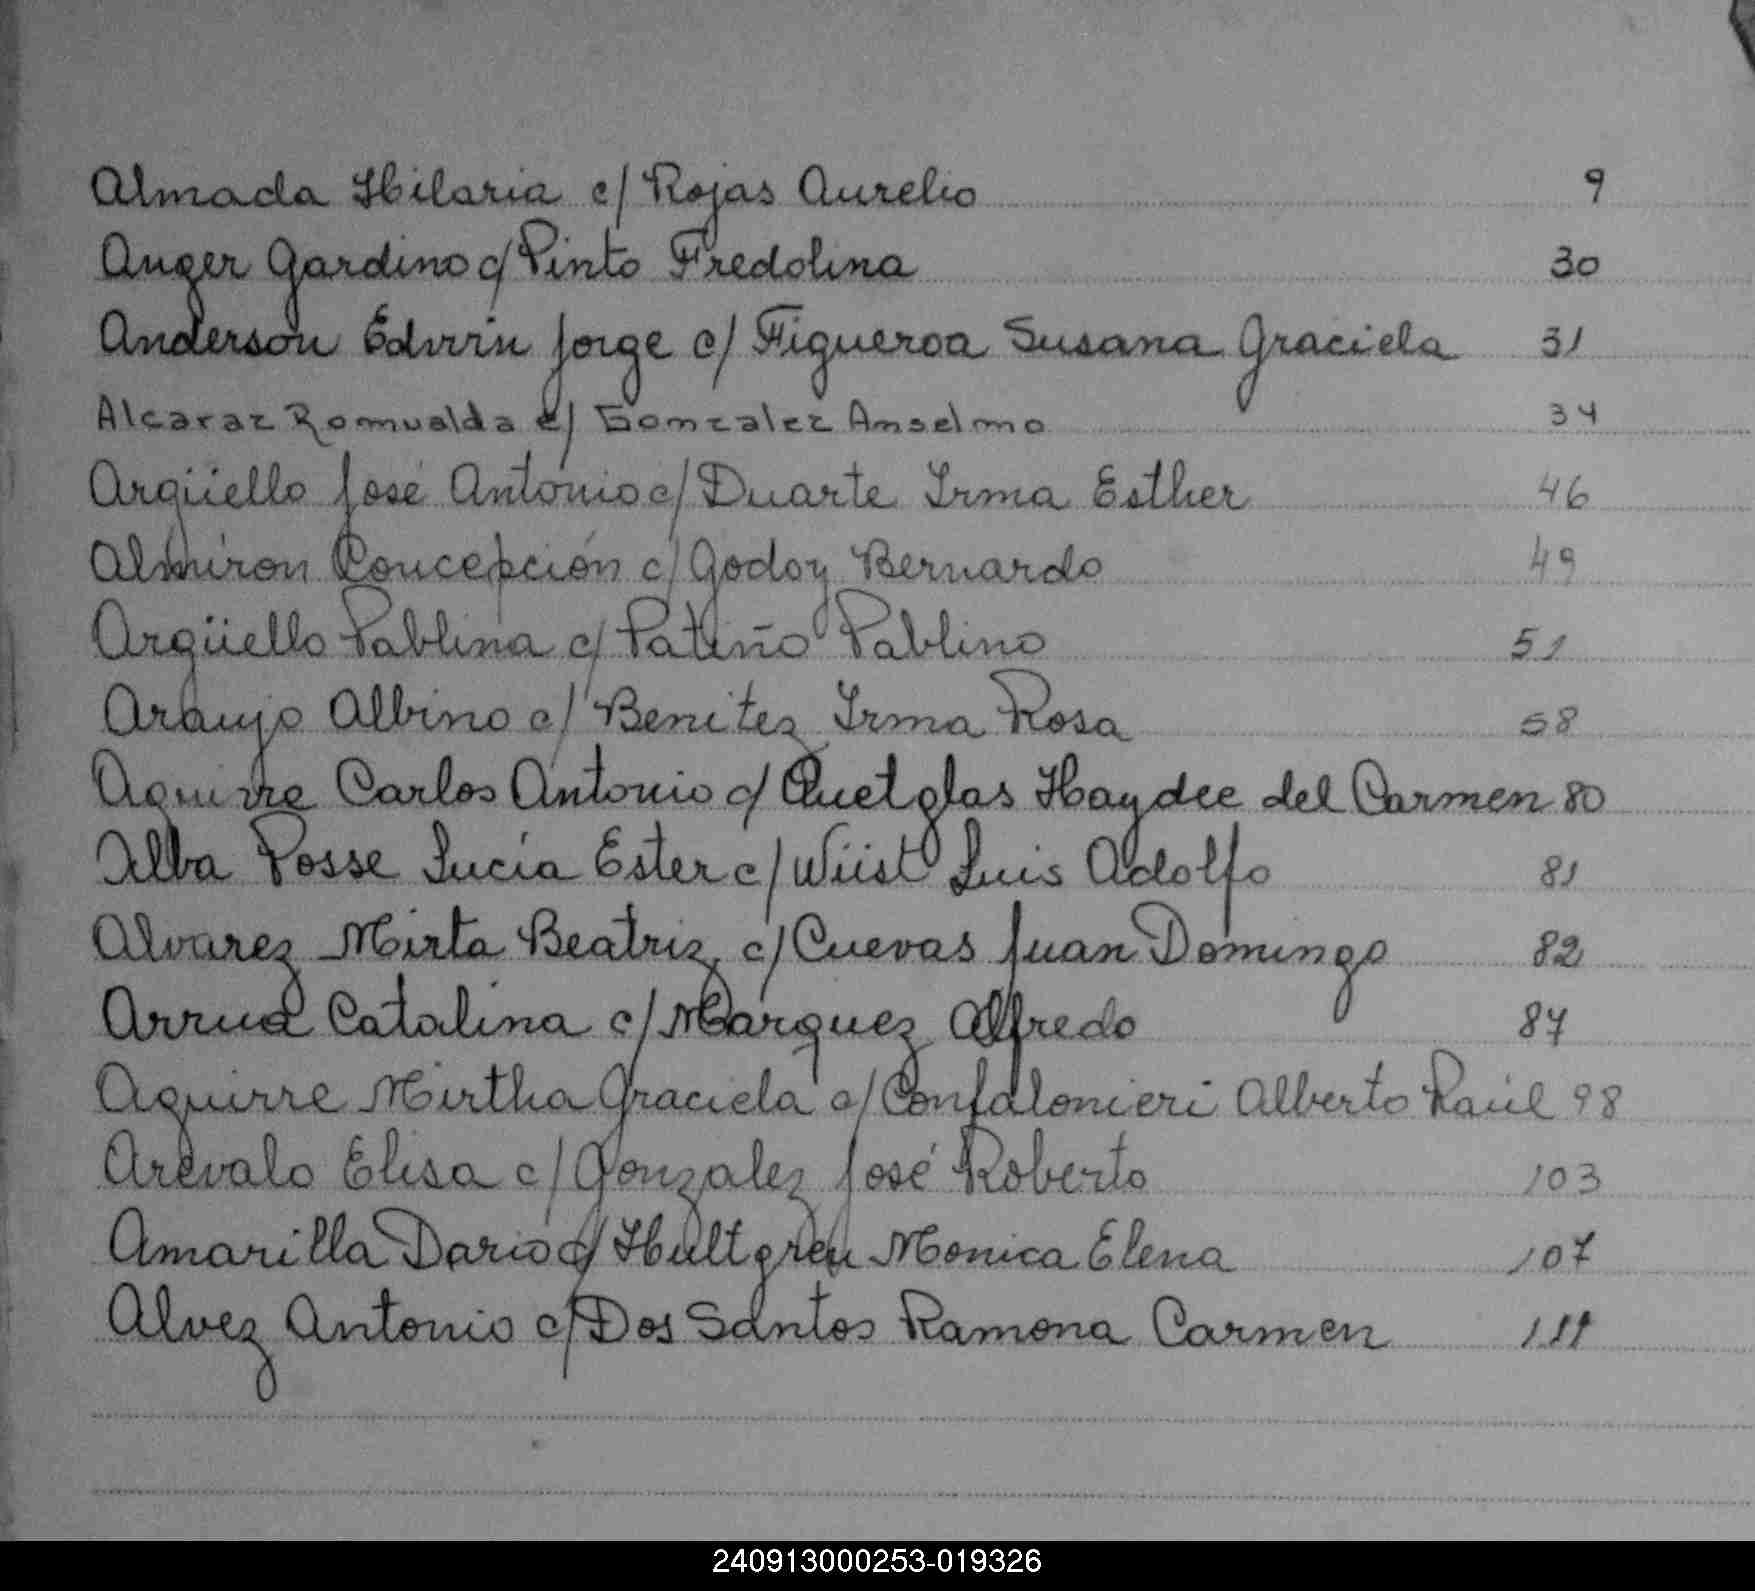 Almada Hilaria c/ Rojas Aurelio 9
Auger Gardino c/ Pinto Fredolina 30
Anderson Edwin Jorge c/ Figueroa Susana Graciela 31
Alcaraz Romualda c/ Gomzalez Anselmo 34
Argüello José Antonio c/ Duarte Irma Esther 46
Almirón Concepción c/ Godoy Bernardo 49
Argüello Pablina c/ Patiño Pablino 51
Araujo Albino c/ Benitez Irma Rosa 58
Aguirre Carlos Antonio c/ Quetglas Haydee del Carmen 80
Alba Posse Lucía Ester c/ Wüst Luis Adolfo 81
Alvarez Mirta Beatriz c/ Cuevas Juan Domingo 82
Arrua Catalina c/ Marquez Alfredo 87
Aguirre Mirtha Graciela c/ Confalonieri Alberto Raúl 98
Arévalo Elisa c/ Gonzalez José Roberto 103
Amarilla Dario c/ Hultgren Monica Elena 107
Alvez Antonio c/ Dos Santos Ramona Carmen 111
240913000253-019326